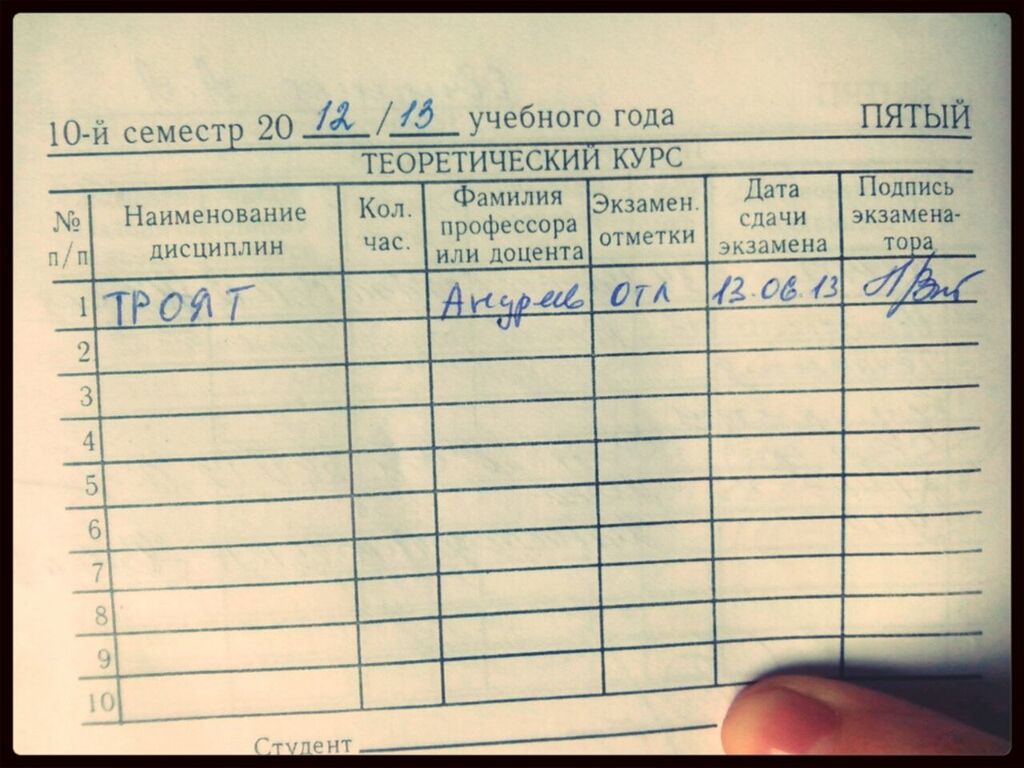 10-й семестр 20 12 / 13 учебного года ПЯТЫЙ
ТЕОРЕТИЧЕСКИЙ КУРС
№ п/п Наименование дисциплин Кол. час. Фамилия профессора или доцента Экзамен. отметки Дата сдачи экзамена Подпись экзамена-тора
1 ТРОЯТ Андреев ОТЛ 13.06.13
2
3
4
5
6
7
8
9
10
Студент